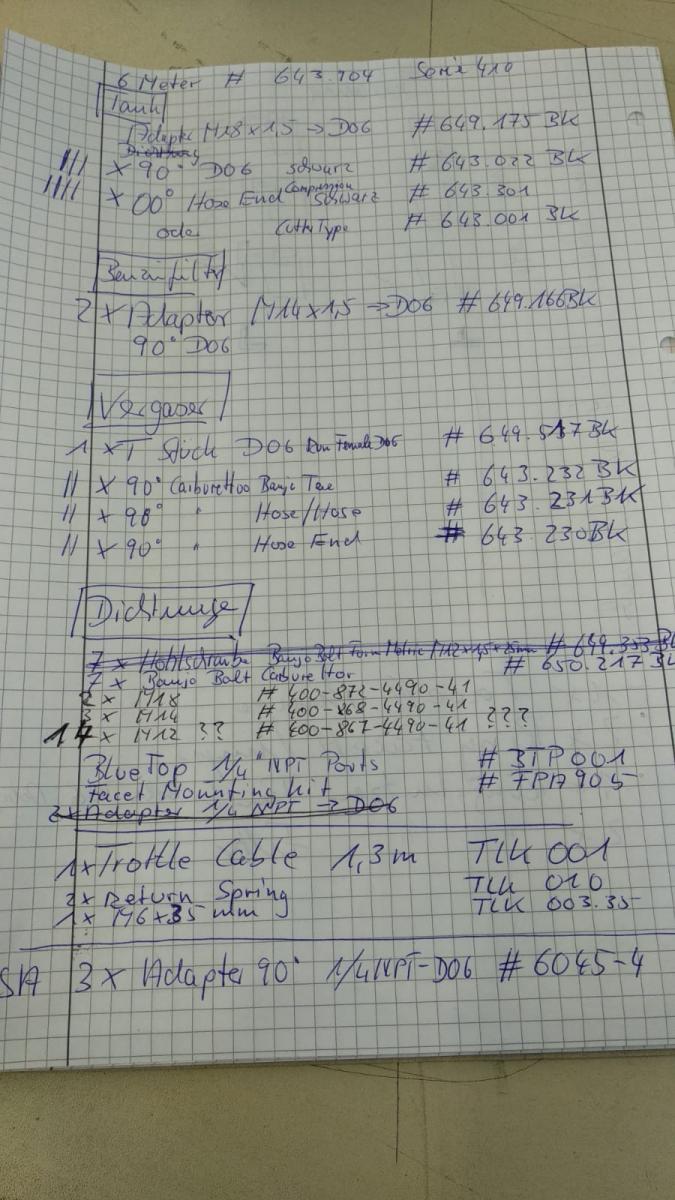 6 Meter # 643.704 Serie 410
Tank
Adapter M18x1,5 → D06 #649.175 BK
Dichtung
III x 90° D06 schwarz #643.022 BK
IIII x 00° Hose End Compression Schwarz #643.301
oder Cutter Type #643.001 BK
Benzinfilter
2 x Adapter M14x1,5 → D06 #649.166BK
90° D06
Vergaser
1 x T Stück D06 Run Female D06 # 649.517BK
II x 90° Carburettoo Banjo Tee # 643.232BK
II x 90° " Hose/Hose # 643.231BK
II x 90° " Hose End # 643.230BK
Dichtunge
7 x Hohlschraube Banjo Bolt Form Metric M12x1,5x25mm # 649.353 BK
7 x Banjo Bolt Carburettor # 650.217 BK
2 x M18 # 400-872-4490-41
3 x M14 # 400-868-4490-41
14 x M12 ?? # 400-867-4490-41 ???
Blue Top 1/4" NPT Ports # BTP001
Facet Mounting kit # FPA905
2x Adapter 1/4 NPT → D06
1x Trottle Cable 1,3m TLK 001
2x Return Spring TLK 010
1x M6x35 mm TLK 003.35
SA 3x Adapter 90° 1/4NPT-D06 #6045-4